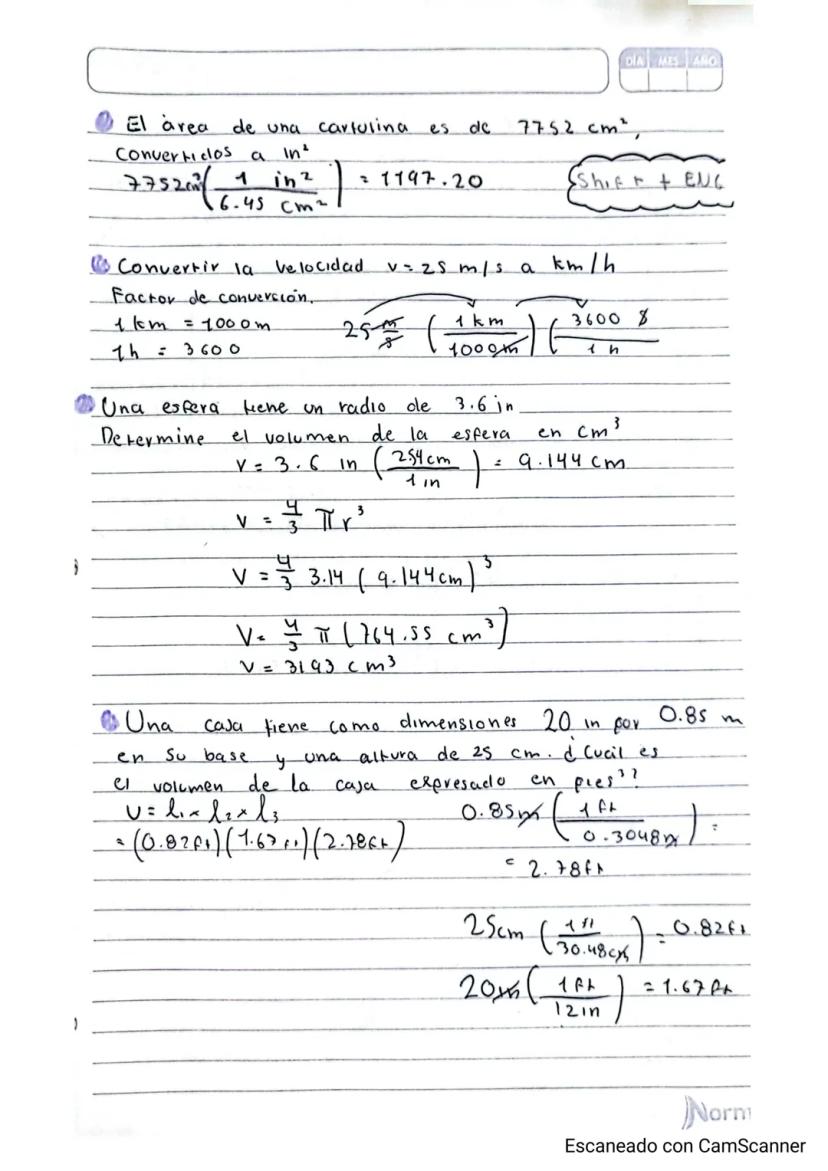 DÍA MES AÑO
El àrea de una cartulina es de 7752 cm²,
Convertidos a in²
7752cm² ( 1 in² / 6.45 cm² ) = 1197.20
Shift + ENG
Convertir la velocidad v= 25 m/s a km/h
Factor de conversión.
1 km = 1000m
1h = 3600
25 m/s ( 1 km / 1000m ) ( 3600 s / 1 h
Una esfera tiene un radio de 3.6 in
Determine el volumen de la esfera en cm³
V = 3.6 in ( 254cm / 1 in ) = 9.144 cm
V = 4/3 πr³
V = 4/3 3.14 ( 9.144cm)³
V = 4/3 π (764.55 cm³)
V = 3193 cm³
Una caja tiene como dimensiones 20 in por 0.85 m
en su base y una altura de 25 cm. ¿Cuál es
el volumen de la caja expresado en pies³?
V = l₁ × l₂ × l₃
= (0.82ft)(1.67ft)(2.78ft)
0.85m ( 1 ft / 0.3048m ) =
= 2.78ft
25cm ( 1ft / 30.48cm ) = 0.82ft
20in ( 1ft / 12in ) = 1.67ft
Norm
Escaneado con CamScanner